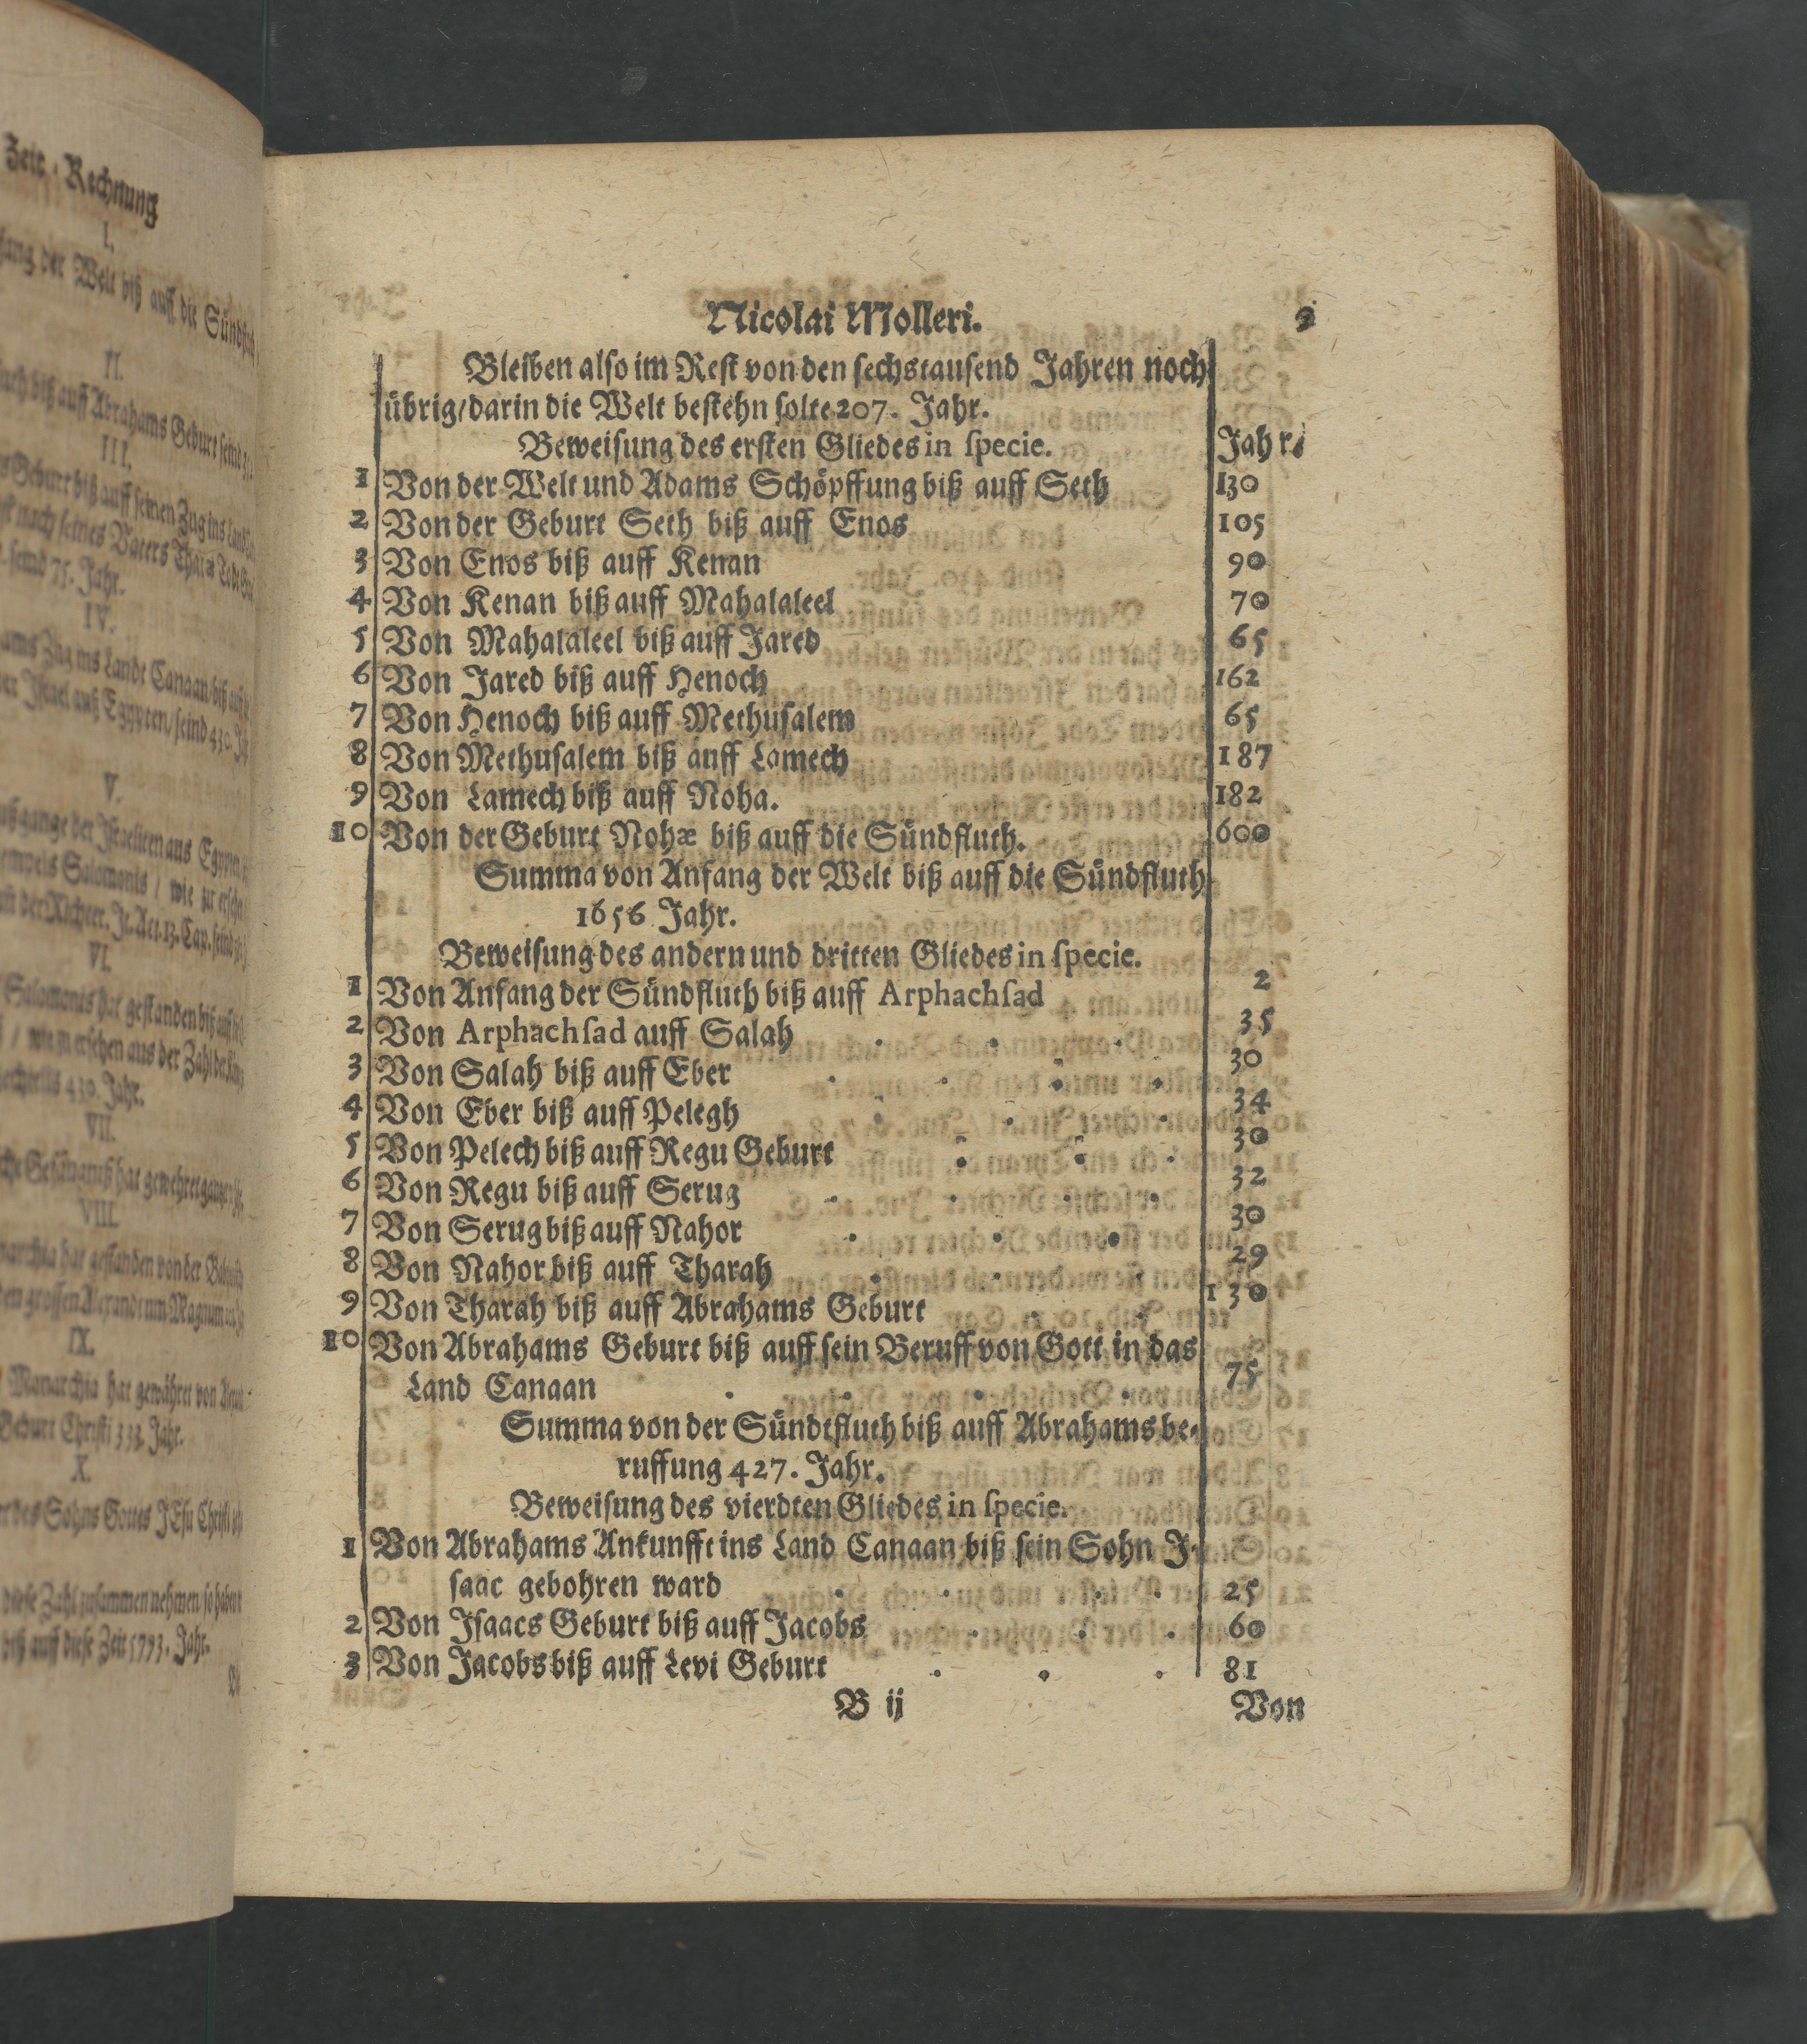 Zeit-Rechnung
I.
der Welt biß auff die
II.
biß auff Abrahams Geburt seind
III.
Geburt biß auff seinen Zug ins
nach seines Vaters Thara Todt
seind 75. Jahr.
IV.
Zug ins Landt Canaan biß auff
Israel auß Egypten/ seind 430.
V.
der Israeliten aus Egypten
Tempels Salomonis / wie zu
der Richter. It. Act. 13. Cap. seind
VI.
Salomonis hat gestanden biß auff
/ wie zu ersehen aus der Zahl der
430. Jahr.
VII.
hat gewehret
VIII.
hat gestanden von der
den grossen Alexandrum Magnum
IX.
Monarchia hat gewähret von
Geburt Christi 333. Jahr.
X.
des Sohns Gottes JEsu Christi
diese Zahl zusammen nehmen so haben
biß auff diese Zeit 5793. Jahr.
Nicolai Molleri. 9
Bleiben also im Rest von den sechstausend Jahren noch
übrig/ darin die Welt bestehn solte 207. Jahr.
Beweisung des ersten Gliedes in specie. Jahr.
1 Von der Welt und Adams Schöpffung biß auff Seth 130
2 Von der Geburt Seth biß auff Enos 105
3 Von Enos biß auff Kenan 90
4 Von Kenan biß auff Mahalaleel 70
5 Von Mahalaleel biß auff Jared 65
6 Von Jared biß auff Henoch 162
7 Von Henoch biß auff Methusalem 65
8 Von Methusalem biß auff Lamech 187
9 Von Lamech biß auff Noha. 182
10 Von der Geburt Nohæ biß auff die Sündfluth. 600
Summa von Anfang der Welt biß auff die Sündfluth
1656 Jahr.
Beweisung des andern und dritten Gliedes in specie.
1 Von Anfang der Sündfluth biß auff Arphachsad 2
2 Von Arphachsad auff Salah . . . 35
3 Von Salah biß auff Eber . . . . 30
4 Von Eber biß auff Pelegh . . . 34
5 Von Pelech biß auff Regu Geburt . . . 30
6 Von Regu biß auff Serug . . . . 32
7 Von Serug biß auff Nahor . . . 30
8 Von Nahor biß auff Tharah . . . 29
9 Von Tharah biß auff Abrahams Geburt . . 130
10 Von Abrahams Geburt biß auff sein Beruff von Gott in das
Land Canaan . . . . 75
Summa von der Sündtfluth biß auff Abrahams be-
ruffung 427. Jahr.
Beweisung des vierdten Gliedes in specie.
1 Von Abrahams Ankunfft ins Land Canaan biß sein Sohn J-
saac gebohren ward . . . . 25
2 Von Isaacs Geburt biß auff Jacobs . . . 60
3 Von Jacobs biß auff Levi Geburt . . . 81
B ij Von